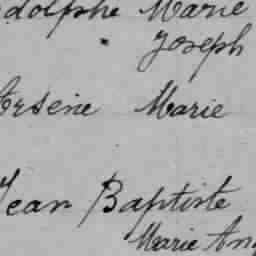 dolphe Marie
" Joseph
Arsène Marie
Jean Baptiste
Marie An